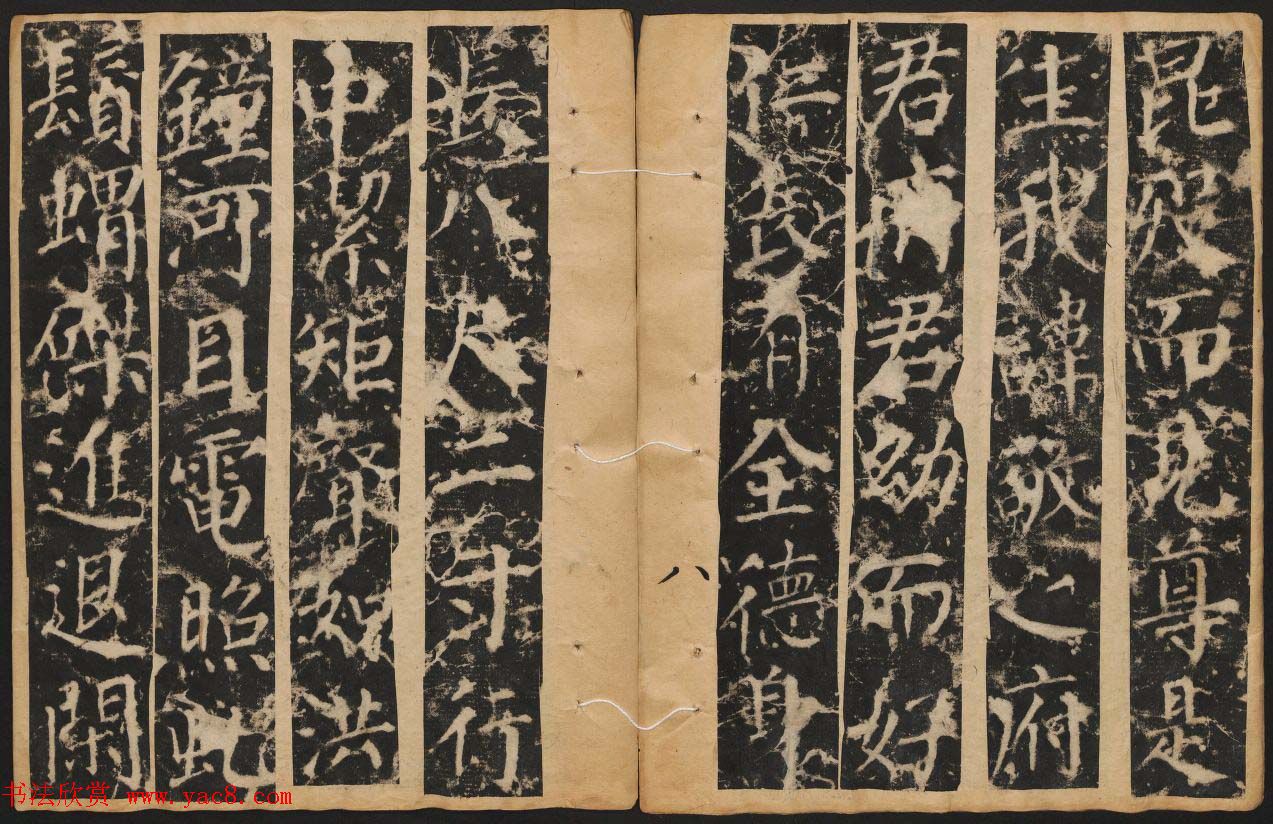 昆而尊是
生我諱敬之府
君君幼而好
仁長有全德身
長八尺二寸行
中絜矩聲洪
鐘河目電照虬
鬚蝟磔進退閑
八
书法欣赏 www.yac8.com